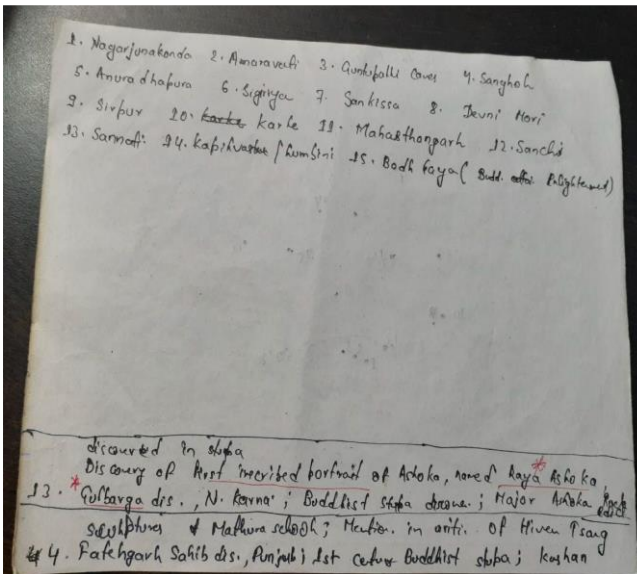 1. Nagarjunakonda 2. Amaravati 3. Guntupalli Caves 4. Sanghol
5. Anuradhapura 6. Sigiriya 7. Sankissa 8. Devni Mori
9. Sirpur 10. Karle 11. Mahasthangarh 12. Sanchi
13. Sannati 14. Kapilvastu / Lumbini 15. Bodh Gaya ( Budd. Enlightened)
discovered in stupa
Discovery of first inscribed portrait of Ashoka, named Raya Ashoka
13. Gulbarga dis., N. Karna; Buddhist stupa ; Major Ashoka Rock edict
sculptures of Mathura school; Mention in of Hiven Tsang
4. Fatehgarh Sahib dis., Punjab; 1st century Buddhist stupa; kushan